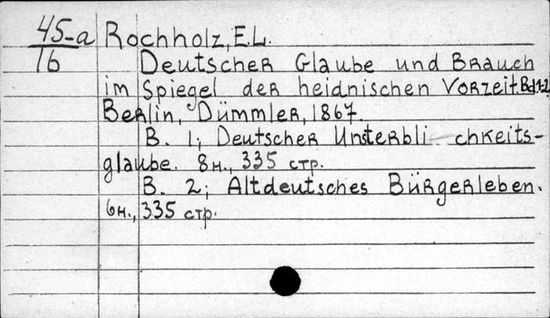 45-a Rochholz, E.L.
16 Deutscher Glaube und Brauch
im Spiegel der heidnischen Vorzeit. Bd 1-2
Berlin, Dümmler, 1867.
B. 1; Deutscher Unsterbli chkeits-
glaube. 8н., 335 стр.
B. 2; Altdeutsches Bürgerleben.
6н., 335 стр.